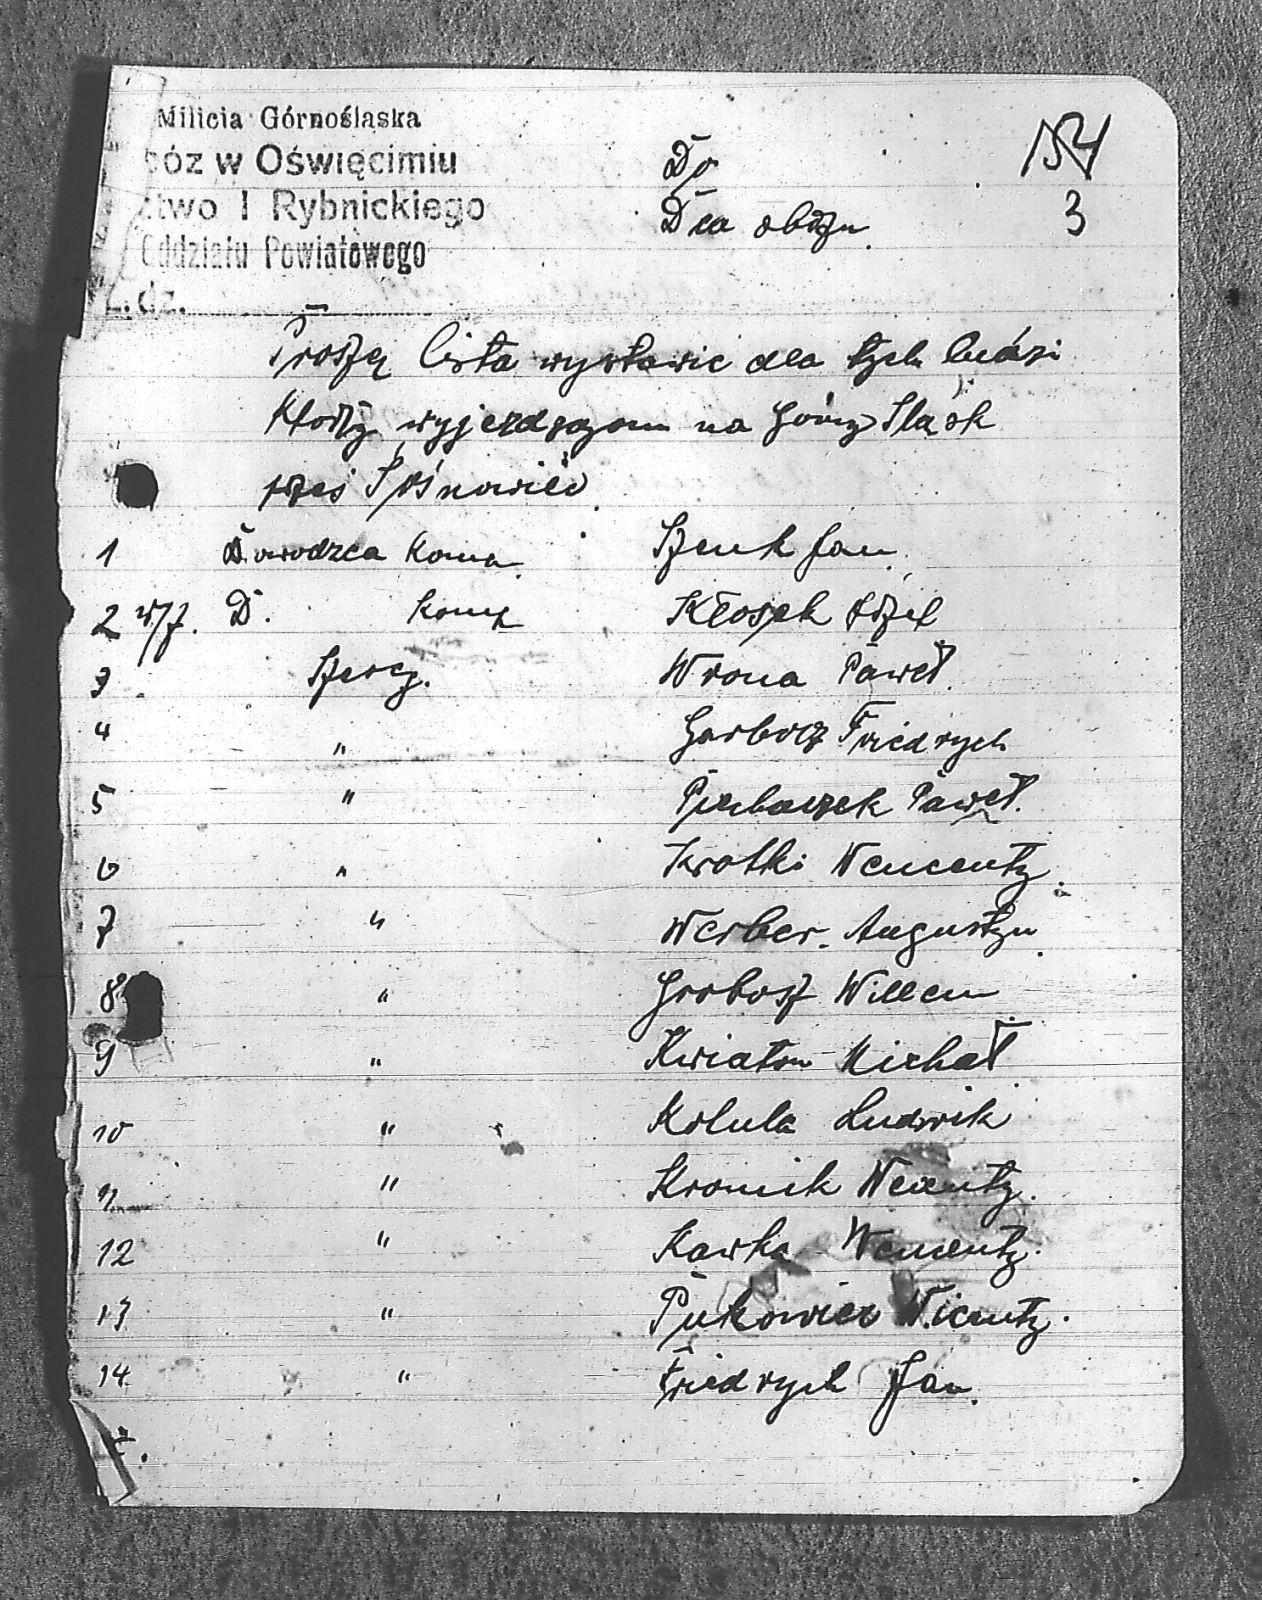 Milicia Górnośląska
bóz w Oświęcimiu
ztwo I Rybnickiego
Oddziału Powiatowego
L. dz.
Do
Dca obozu.
3
Proszę lista wystawic dla tych ludzi
Którzy wyjezdzajom na Górny Sląsk
przes Sosnowiec
1 Dowodzca Komp. Szenk Jan.
2 D. Komp Kłosek Józef
3 Szereg. Wrona Paweł.
4 " Garbocz Friedrych
5 " Paweł.
6 " Krotki Wencenty.
7 " Werber. Augustyn.
8 " Grobosz Willem
9 " Kwiaton Michał
10 " Kolula Ludwik
11 " Kromik Wencenty.
12 " Kawka Wencenty.
13 " Pukowiec Wicenty.
14 " Friedrych Jan.